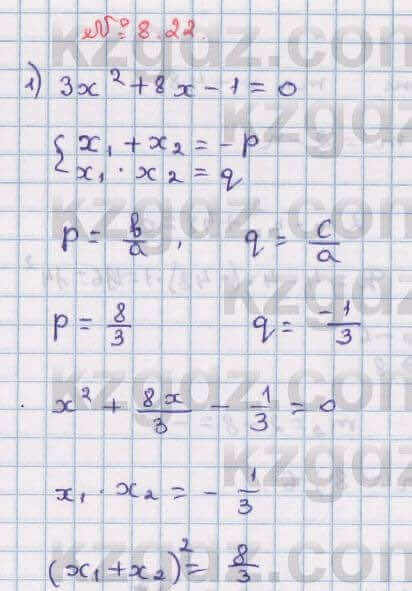 № 8.22.
1) 3x² + 8x - 1 = 0
{ x₁ + x₂ = -p
x₁ · x₂ = q
p = b/a, q = c/a
p = 8/3 q = -1/3
x² + 8x/3 - 1/3 = 0
x₁ · x₂ = - 1/3
(x₁ + x₂)² = 8/3
kzgdz.com
kzgdz.com
kzgdz.com
kzgdz.com
kzgdz.com
kzgdz.com